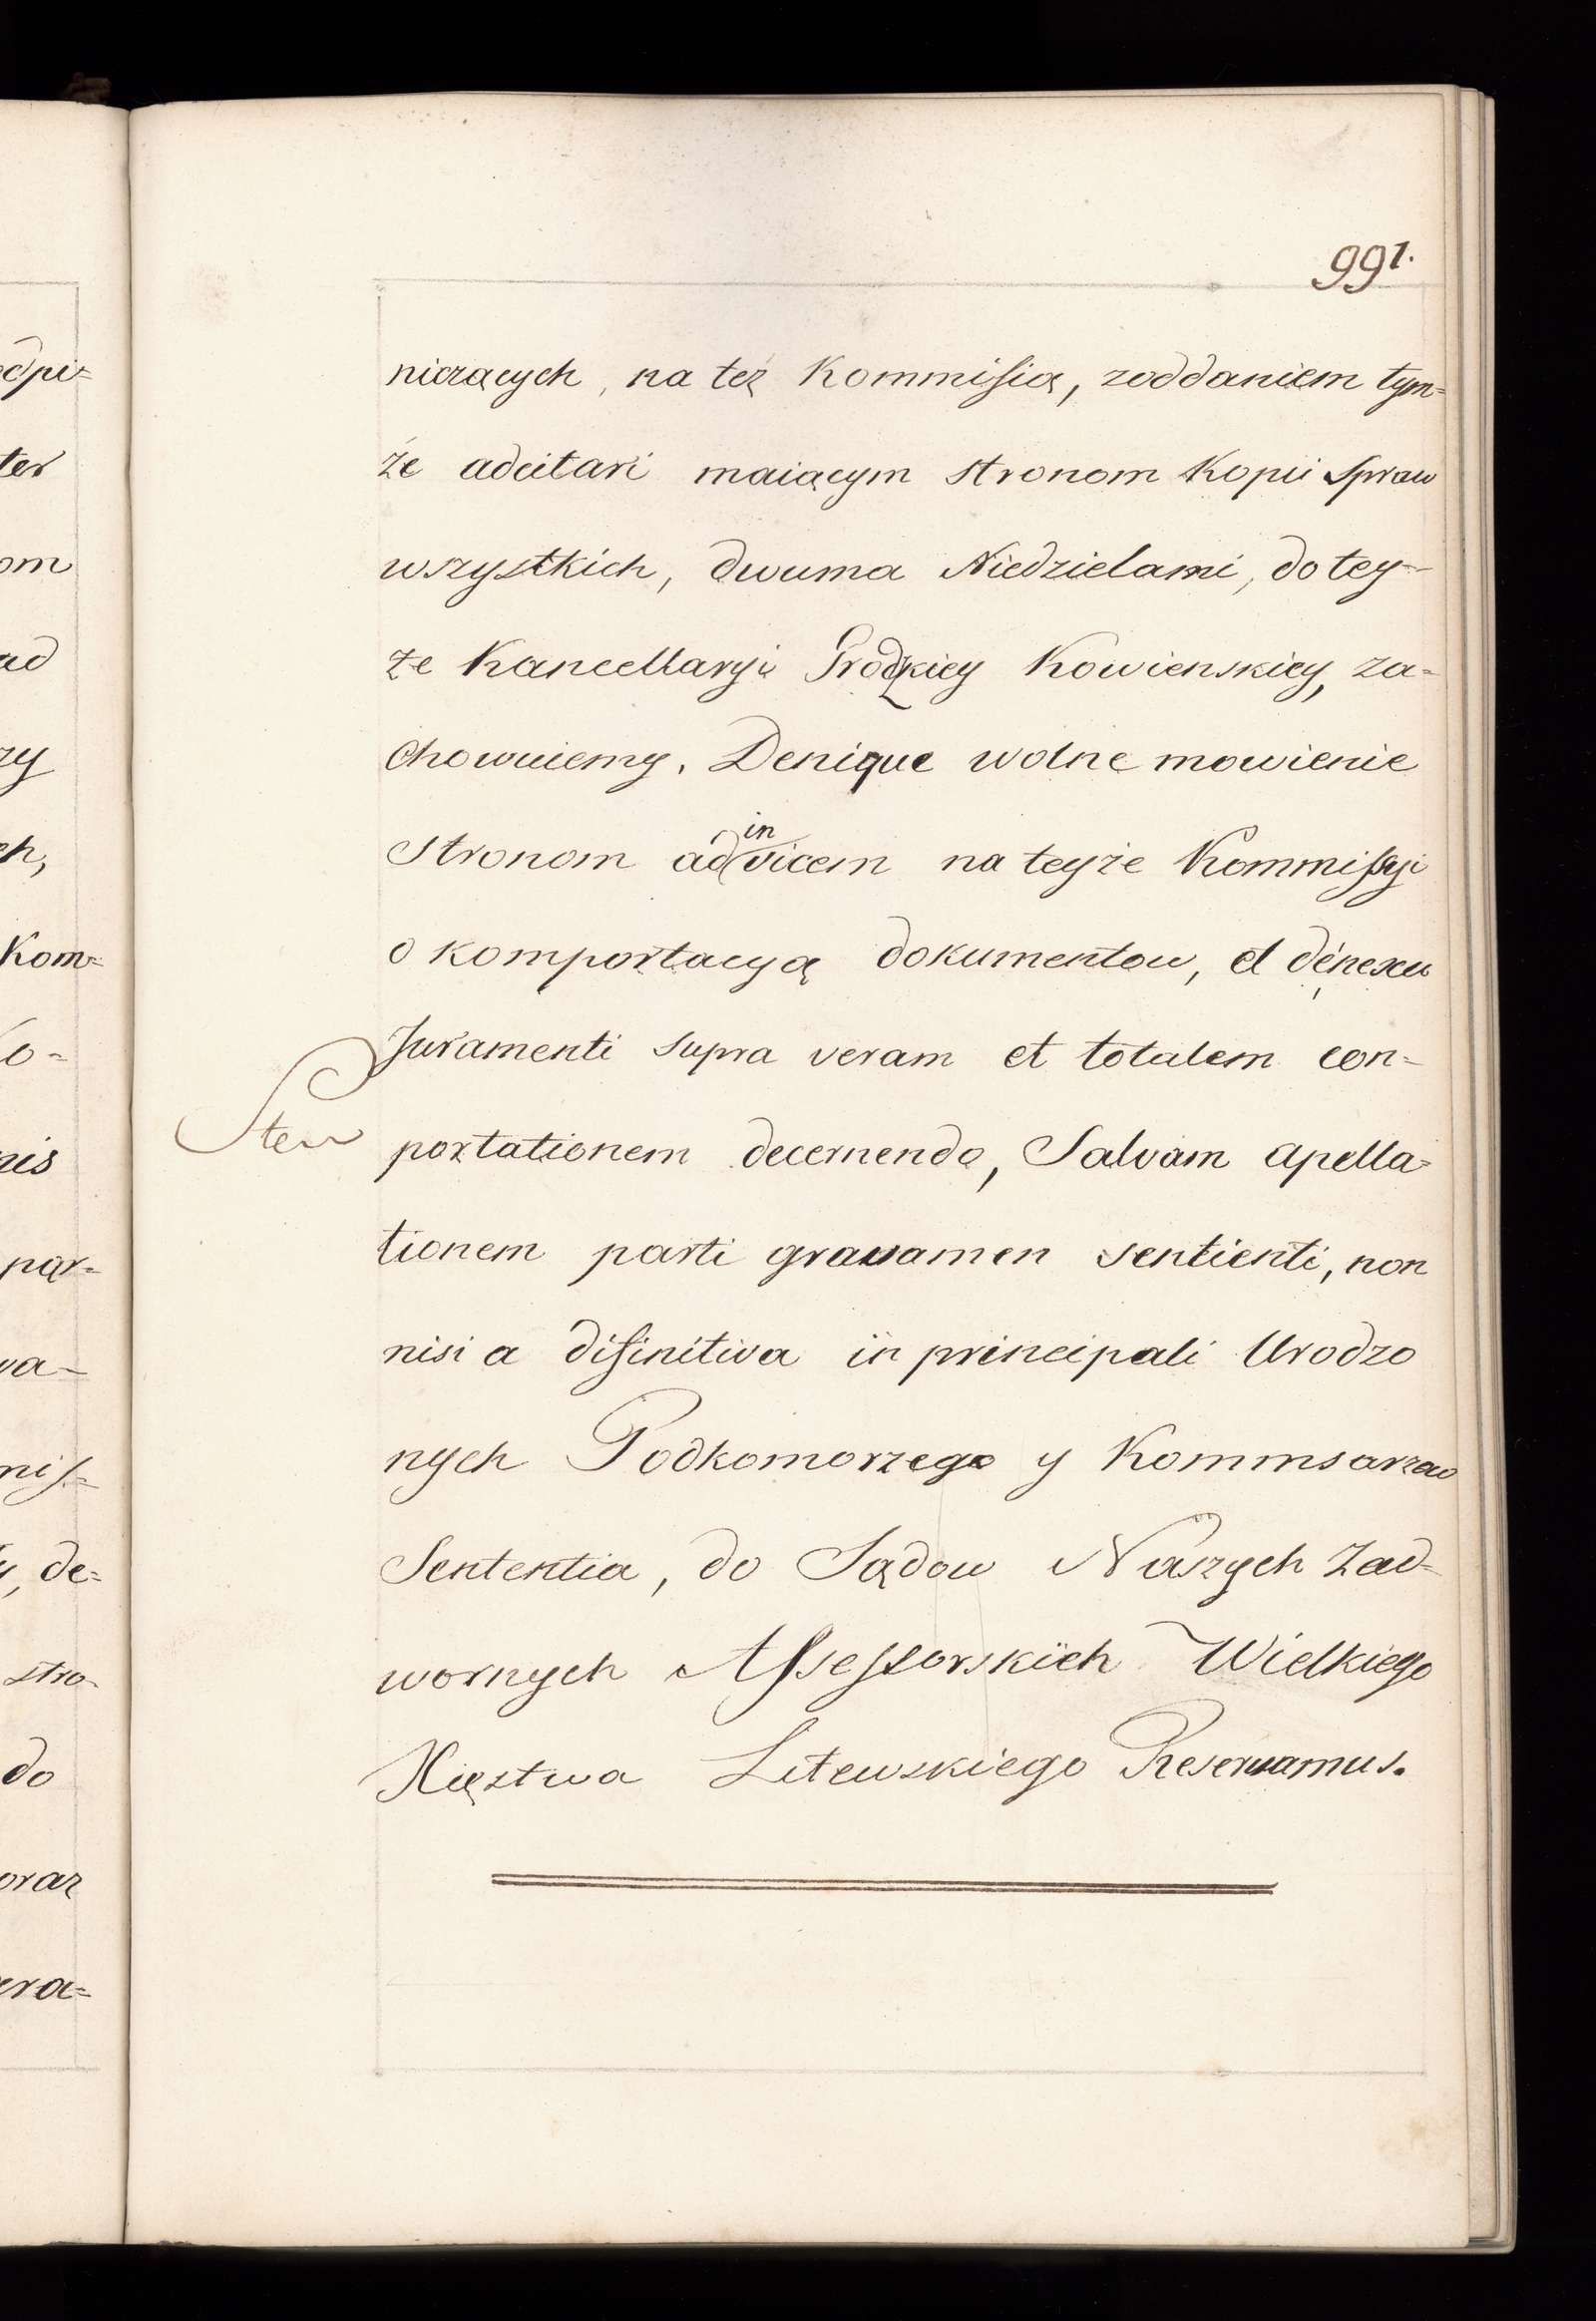 991.
niczących, na też Kommisią, zoddaniem tym=
że adcitari maiącym stronom Kopii Spraw
wszystkich, dwuma Niedzielami, do tey-
że Kancellaryi Grodzkiey Kowienskiey, za=
chowuiemy. Denique wolne mowienie
stronom ad in vicem na teyże Kommissyi
o komportacyą dokumentow, et dé nexu
Juramenti supra veram et totalem con-
portationem decernendo, Salvam apella=
tionem parti gravamen sentienti, non
nisi a difinitiva in principali Urodzo
nych Podkomorzego y Kommsarzow
Sententia, do Sądow Naszych Zad-
wornych Assessorskich Wielkiego
Xięstwa Litewskiego Reservamus.
odpi=
ter
om
ad
zy
ch,
Kom=
o-
nis
par=
wa-
mis=
y, de=
stro-
do
oraz
era=